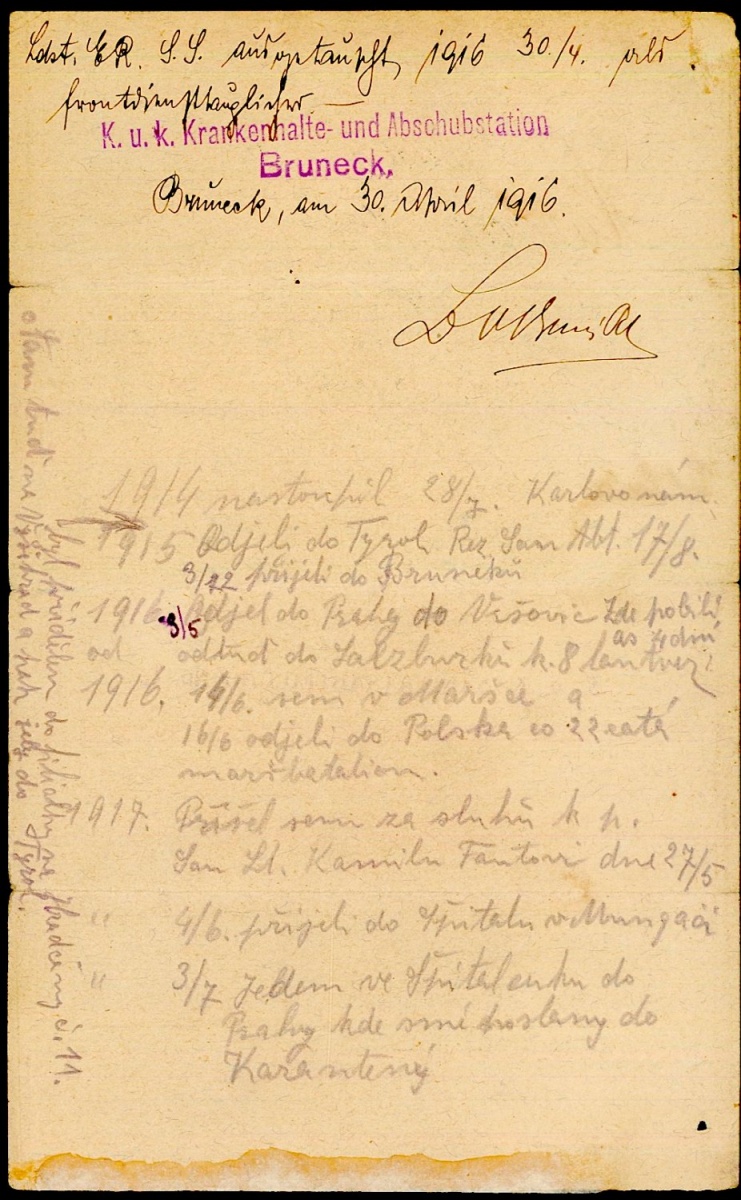 Ldst. ER. S.S. ausgetauscht 1916 30./4. als
frontdiensttauglicher
K. u. k. Krankenhalte- und Abschubstation
Bruneck.
Bruneck, am 30. April 1916.
1914 nastoupil 28/7. Karlovo nám.
1915 Odjeli do Tyrol. Rez. San Abt. 17/8.
3/12 přijeli do Brunecků
1916. 3/5 Odjel do Prahy do Vršovic Zde pobili
as 4 dni
od odtuď do Salzburků k. 8
1916. 14/6. sem v Maršce a
16/6 odjeli do Polska co 22 eatá
maršbatalion.
1917. Přišel sem za sluhů k p.
San Lt. Kamilu Fantovi dne 27/5
" 4/6. přijeli do Špitalu v Mungači
" 3/7 Jedem ve Špitalcuku do
Prahy kde smě poslany do
Karantény
byl přidělen do filialky na Hradčany č. 11.
a tam tuď na Vyšehrad a pak jely do Tyrol.